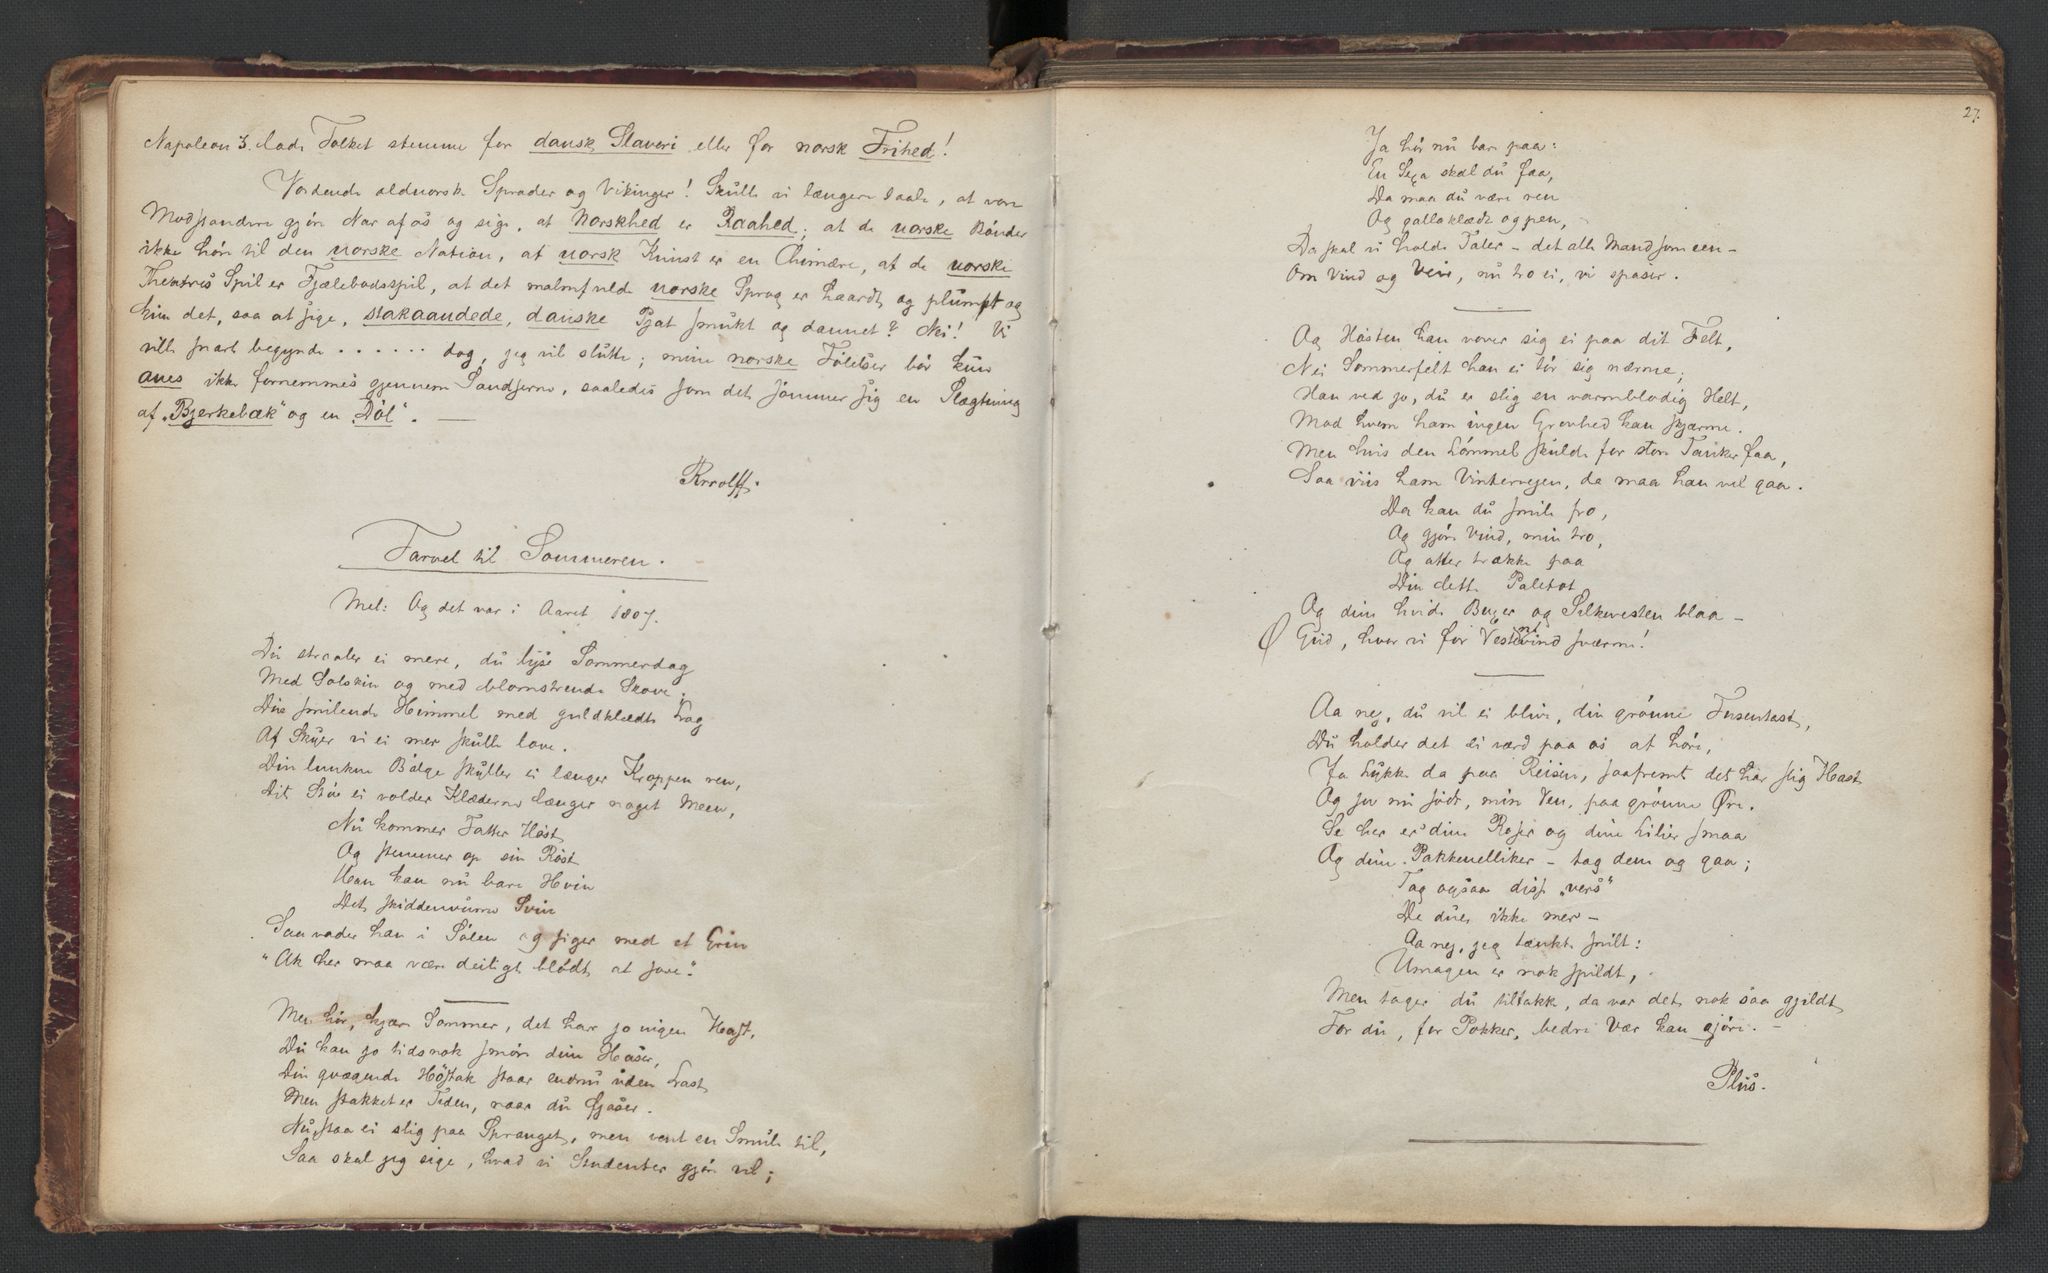 Napoleon 3. lade Folket stemme for dansk Slaveri eller for norsk Frihed!
Vordende oldnorske Sprader og Vikinger! Skulle vi længere taale, at vore
Modstandere gjøre Nar af os og sige, at Norskhed er Raahed; at de norske Bønder
ikke høre til den norske Nation, at norsk Kunst er en Chimære, at de norske
Theatres Spil er Fjælebodsspil, at det malmfulde norske Sprog er haardt og plumpt og
kun det, saa at sige, stakaandede, danske Pjat smukt og dannet? Nei! Vi
ville snart begynde . . . . . . dog, jeg vil slutte; mine norske Følelser bør kun
anes ikke fornemmes gjennem Sandserne, saaledes som det sømmer sig en Slægtning
af "Bjerkebæk" og en "Døl".
Rrrolff.
Farvel til Sommeren.
Mel: Og det var i Aaret 1807.
Du straaler ei mere, du lyse Sommerdag
Med Solskin og med blomstrende Skove.
Din smilende Himmel med guldklædte Lag
Af Skyer vi ei mer skulle love.
Din lunkne Bølge skyller ei længer Kroppen ren,
Dit Støv ei volder Klæderne længer noget Meen,
Nu kommer Fatter Høst
Og stemmer op sin Røst
Han kan nu bare Hvin
Det skiddenvurne Svin
Saa vader han i Sølen og siger med et Grin
"Ak her maa være deiligt blødt at sove."
Men hør, kjære Sommer, det har jo ingen Hast,
Du kan jo tidsnok smøre dine Haser,
Din qvægende Høstak staar endnu uden Last
Men stakket er Tiden, naar du fjaser.
Nu, staa ei slig paa Spranget, men vent en Smule til,
Saa skal jeg sige, hvad vi Studenter gjøre vil;
27.
Ja hør nu bare paa:
En Sexa skal du faa,
Da maa du være ren
Og gallaklædt og pen,
Da skal vi holde Taler – det alle Mand som een –
Om Vind og Veir, nu tro ei, vi spaser.
Og Høsten han vover sig ei paa dit Felt,
Nei Sommerfelt han ei tør sig nærme;
Han ved jo, du er slig en varmblodig Helt,
Mod hvem ham ingen Grovhed kan skjærme.
Men hvis den Lømmel skulde for store Tanker faa,
Saa viis ham Vinterveien, da maa han vel gaa.
Da kan du smile fro,
Og gjøre Vind, min tro,
Og atter trække paa
Din lette Paletot
Og dine hvide Buxer og Silkevesten blaa –
Gud, hvor vi for Vestenvind sværme!
Aa nej, du vil ei blive, din grønne Fusentast,
Du holder det ei værd paa os at høre,
Ja Lykke da paa Reisen, saafremt det har slig Hast
Og su nu sødt, min Ven, paa grønne Øre.
Se her er dine Roser og dine Lilier smaa
Og dine Pakkenelliker – tag dem og gaa;
Tag ogsaa disse "vers"
De due ikke mer –
Aa nej, jeg tænkte snilt:
Umagen er nok spildt,
Men tager du tiltakke, da var det nok saa gjildt
For du, for Pokker, bedre Vær kan gjøre. –
Plus.